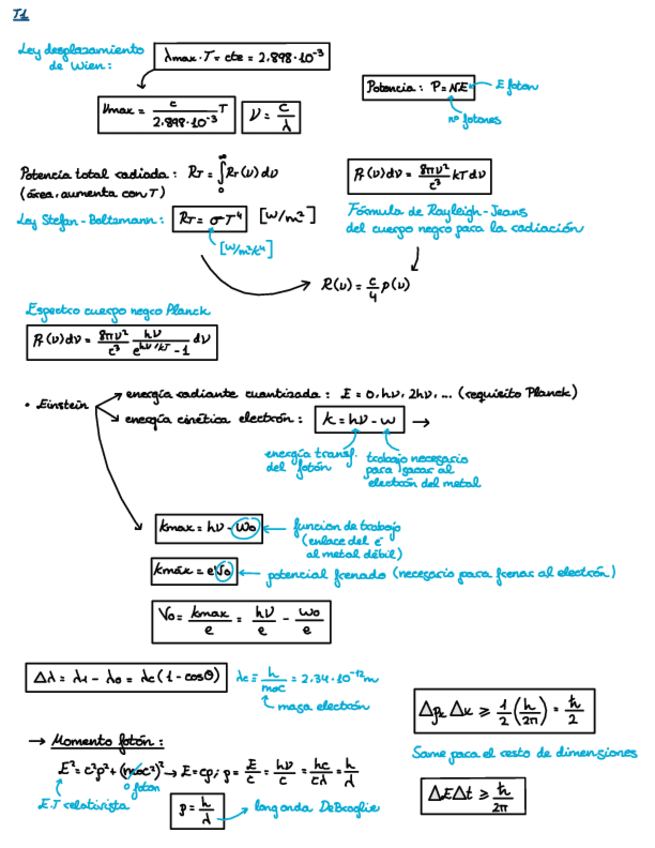 T1
Ley desplazamiento
de Wien:
λmax · T = cte = 2.898 · 10⁻³
νmax = c / 2.898·10⁻³ T
ν = c/λ
Potencia: P = NE
E foton
nº fotones
Potencia total radiada: R_T = ∫₀^∞ R_T(ν)dν
(área, aumenta con T)
Ley Stefan-Boltzmann: R_T = σT⁴ [W/m²]
[W/m²K⁴]
ρ_T(ν)dν = 8πν²/c³ kT dν
Fórmula de Rayleigh-Jeans
del cuerpo negro para la radiación
R(ν) = c/4 ρ(ν)
Espectro cuerpo negro Planck
ρ_T(ν)dν = 8πν²/c³ hν/(e^(hν/kT) - 1) dν
• Einstein
energía radiante cuantizada: E = 0, hν, 2hν, ... (requisito Planck)
energía cinética electrón: K = hν - w →
energía transf.
del fotón
trabajo necesario
para sacar al
electrón del metal
Kmax = hν - w₀
funcion de trabajo
(enlace del e⁻
al metal débil)
Kmáx = eV₀
potencial frenado (necesario para frenar al electrón)
V₀ = Kmax/e = hν/e - w₀/e
Δλ = λ₁ - λ₀ = λc(1 - cosθ)
λc ≡ h/m₀c = 2.34 · 10⁻¹² m
masa electrón
Δpₓ Δx ≥ 1/2 (h/2π) = ħ/2
Same para el resto de dimensiones
ΔEΔt ≥ ħ/2π
→ Momento fotón:
E² = c²p² + (m₀c²)² → E = cp; p = E/c = hν/c = hc/cλ = h/λ
0 foton
E.T relativista
p = h/λ
long onda DeBroglie